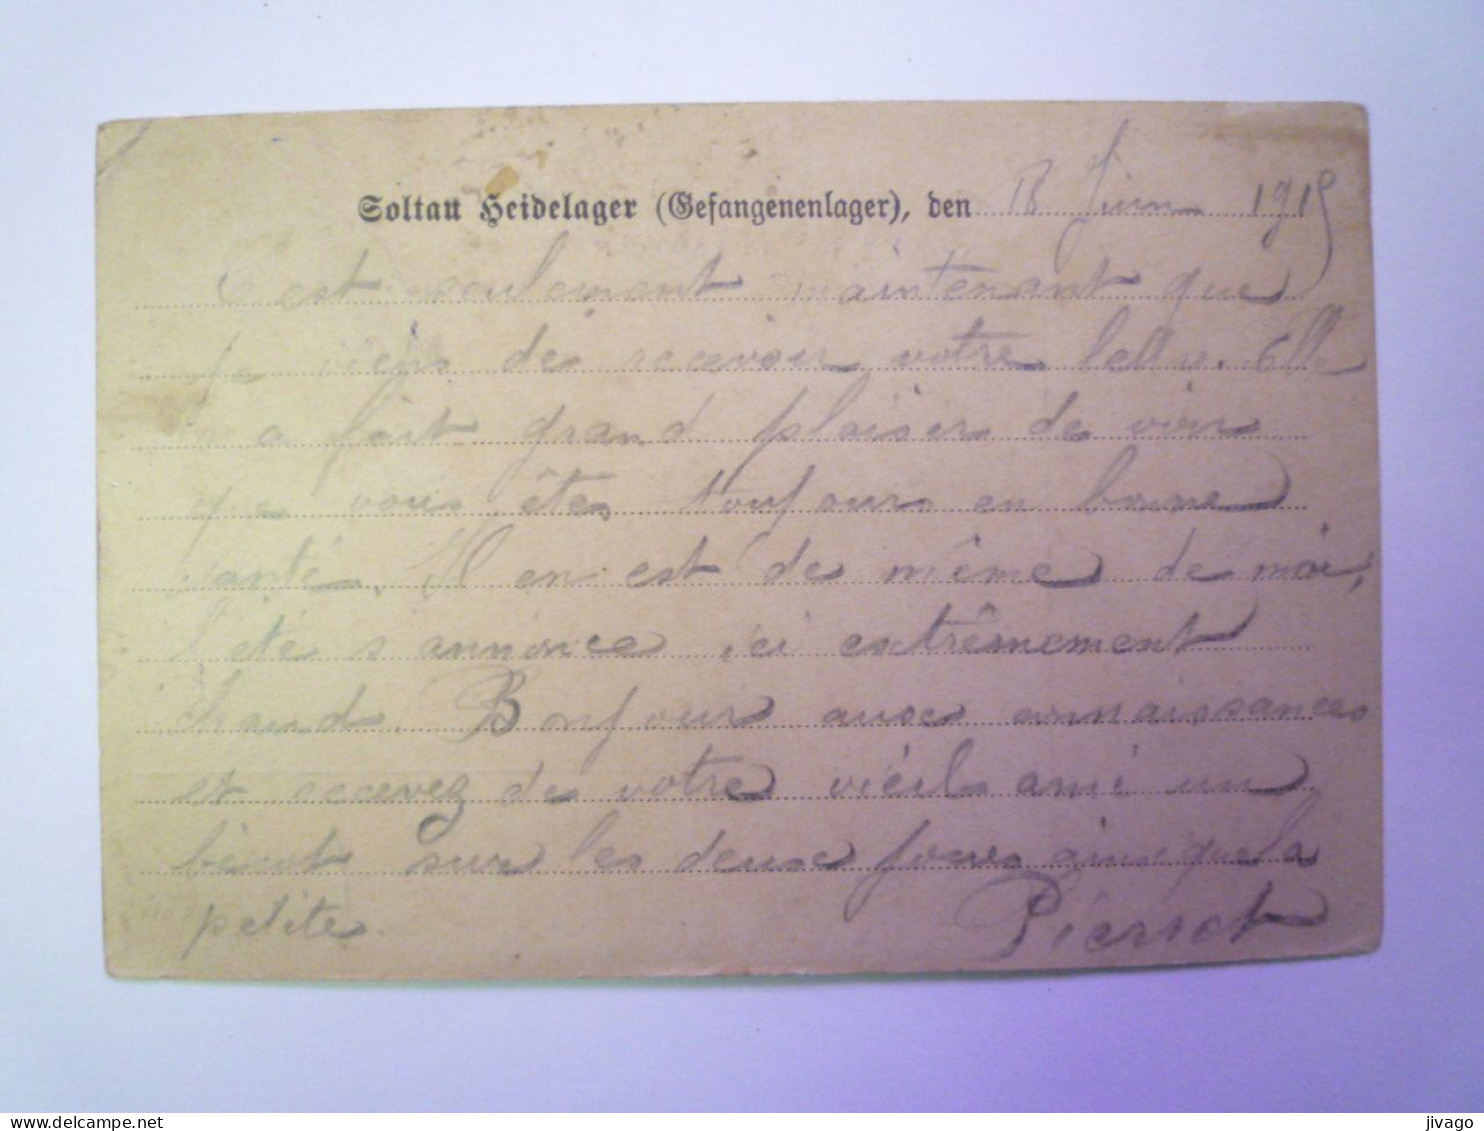 Soltau Heidelager (Gefangenenlager), den 18 Juin 1915
C'est seulement maintenant que
je viens de recevoir votre lettre. Elle
m'a fait grand plaiser de voir
que vous êtes toujours en bonne
santé. Il en est de même de moi,
l'été s'annonce ici extrêmement
chaud. Bonjour aux connaissances
et recevez de votre vieil ami un
bécot sur les deux joues ainsi que la
petite.
Pierret
delcampe.net
jivago